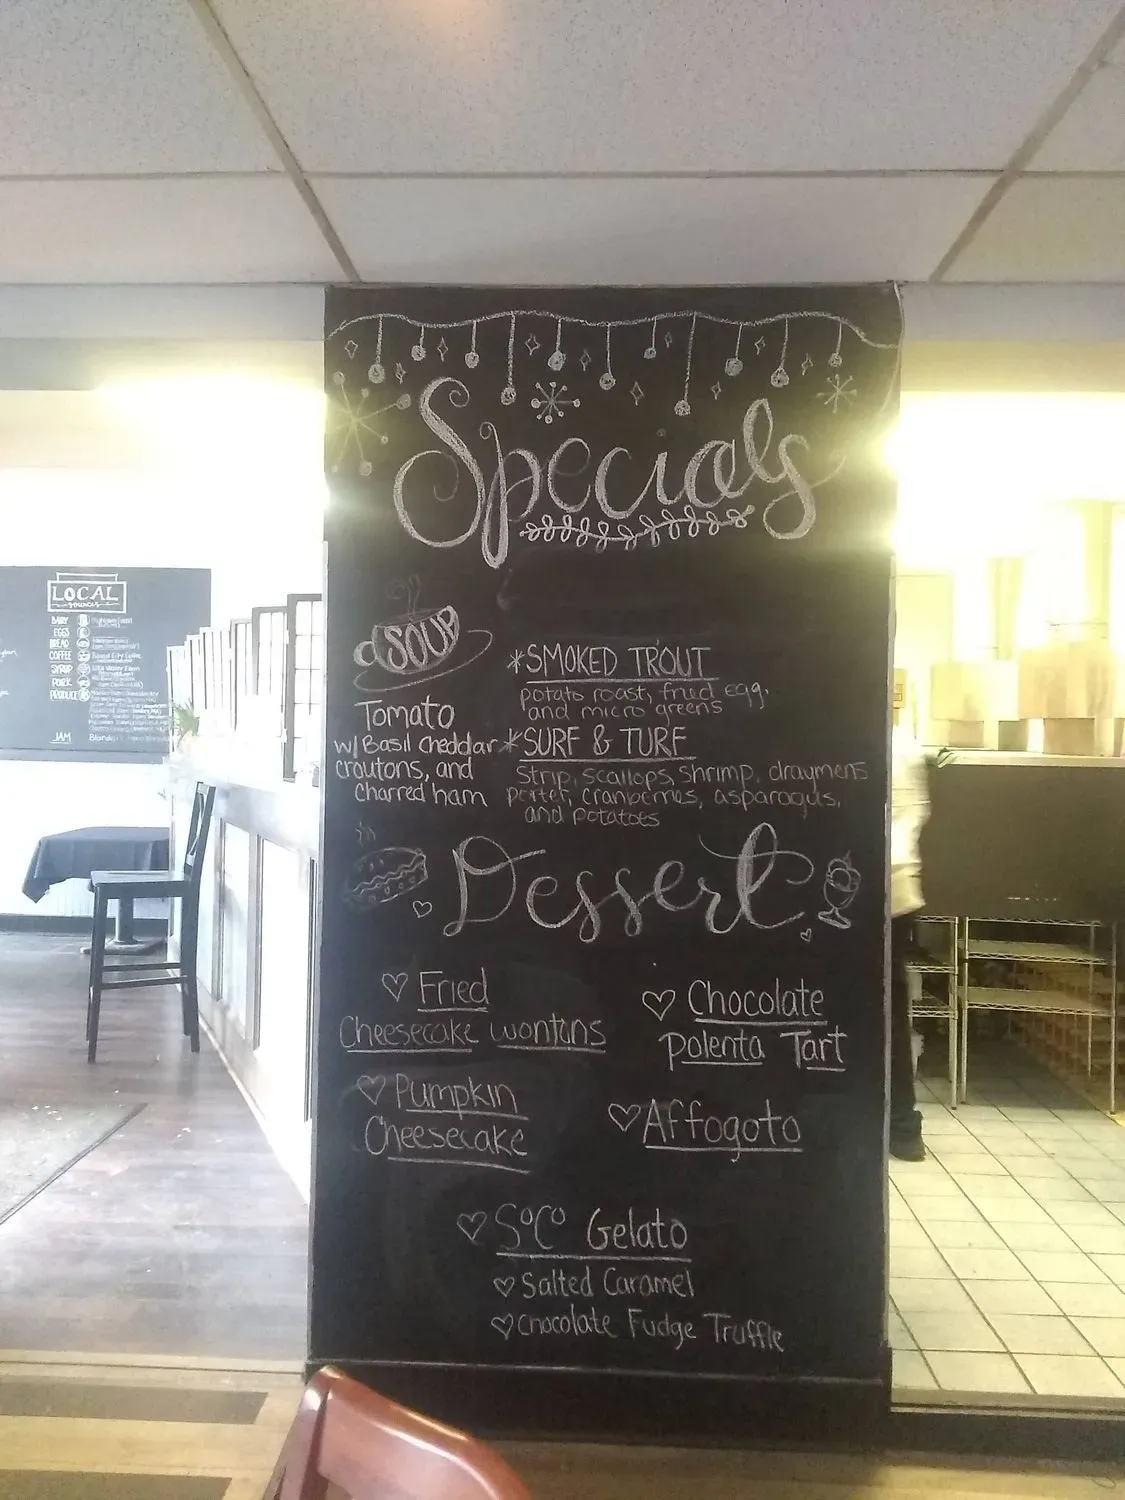 Specials
SOUP
Tomato
w/ Basil cheddar
croutons, and
charred ham
*SMOKED TROUT
potato roast, fried egg,
and micro greens
*SURF & TURF
Strip, scallops, shrimp, draymens
porter, cranberries, asparagus,
and potatoes
Dessert
Fried
Cheesecake wontons
Pumpkin
Cheesecake
Chocolate
Polenta Tart
Affogoto
SoCo Gelato
Salted Caramel
Chocolate Fudge Truffle
LOCAL
sources
DAIRY
EGGS
BREAD
COFFEE
SYRUP
PORK
PRODUCE
JAM